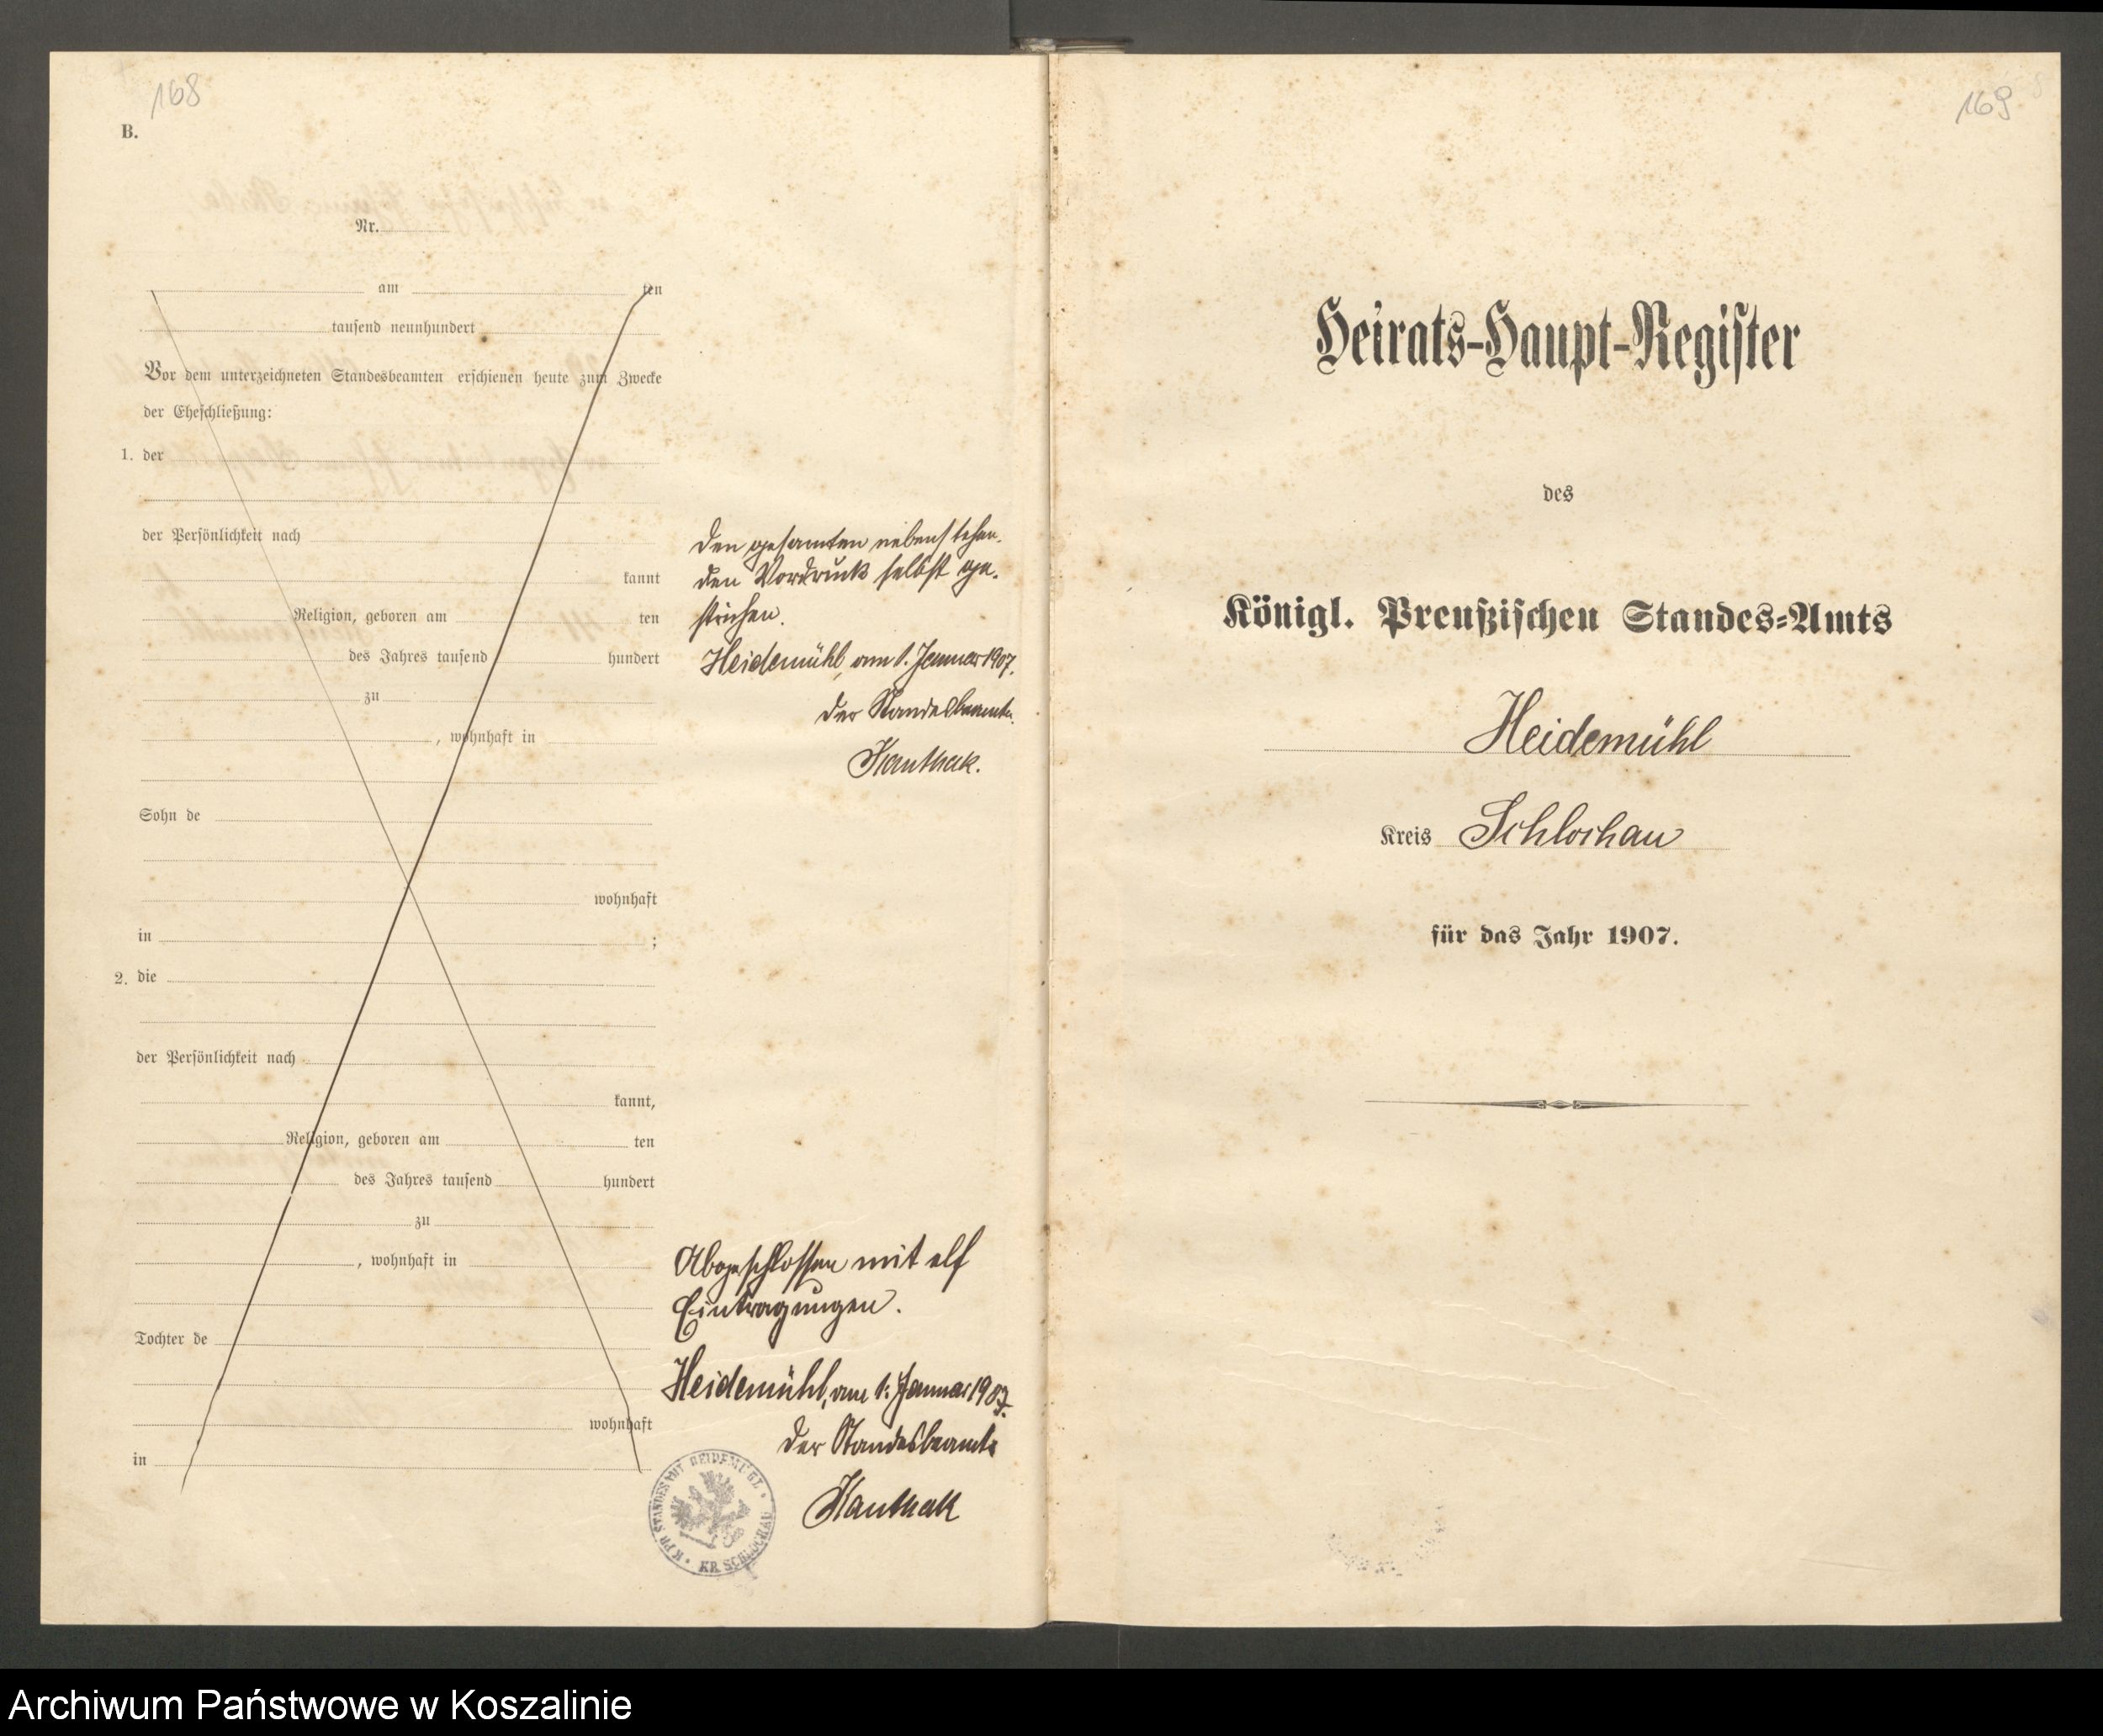 168
B.
Nr.
am ten
tausend neunhundert
Vor dem unterzeichneten Standesbeamten erschienen heute zum Zwecke
der Eheschließung:
1. der
der Persönlichkeit nach
kannt
Religion, geboren am ten
des Jahres tausend hundert
zu
, wohnhaft in
Sohn de
wohnhaft
in ;
2. die
der Persönlichkeit nach
kannt,
Religion, geboren am ten
des Jahres tausend hundert
zu
, wohnhaft in
Tochter de
wohnhaft
in
Den gesamten nebenstehen-
den Vordruck selbst ge-
strichen.
Heidemühl, am 1. Januar 1907.
Der Standesbeamte.
Kauthak.
Abgeschlossen mit elf
Eintragungen.
Heidemühl, am 1. Januar 1907.
Der Standesbeamte
Kauthak
K. PR. STANDESAMT HEIDEMÜHL
KR. SCHLOCHAU
169
Heirats-Haupt-Register
des
Königl. Preußischen Standes-Amts
Heidemühl
Kreis Schlochau
für das Jahr 1907.
Archiwum Państwowe w Koszalinie